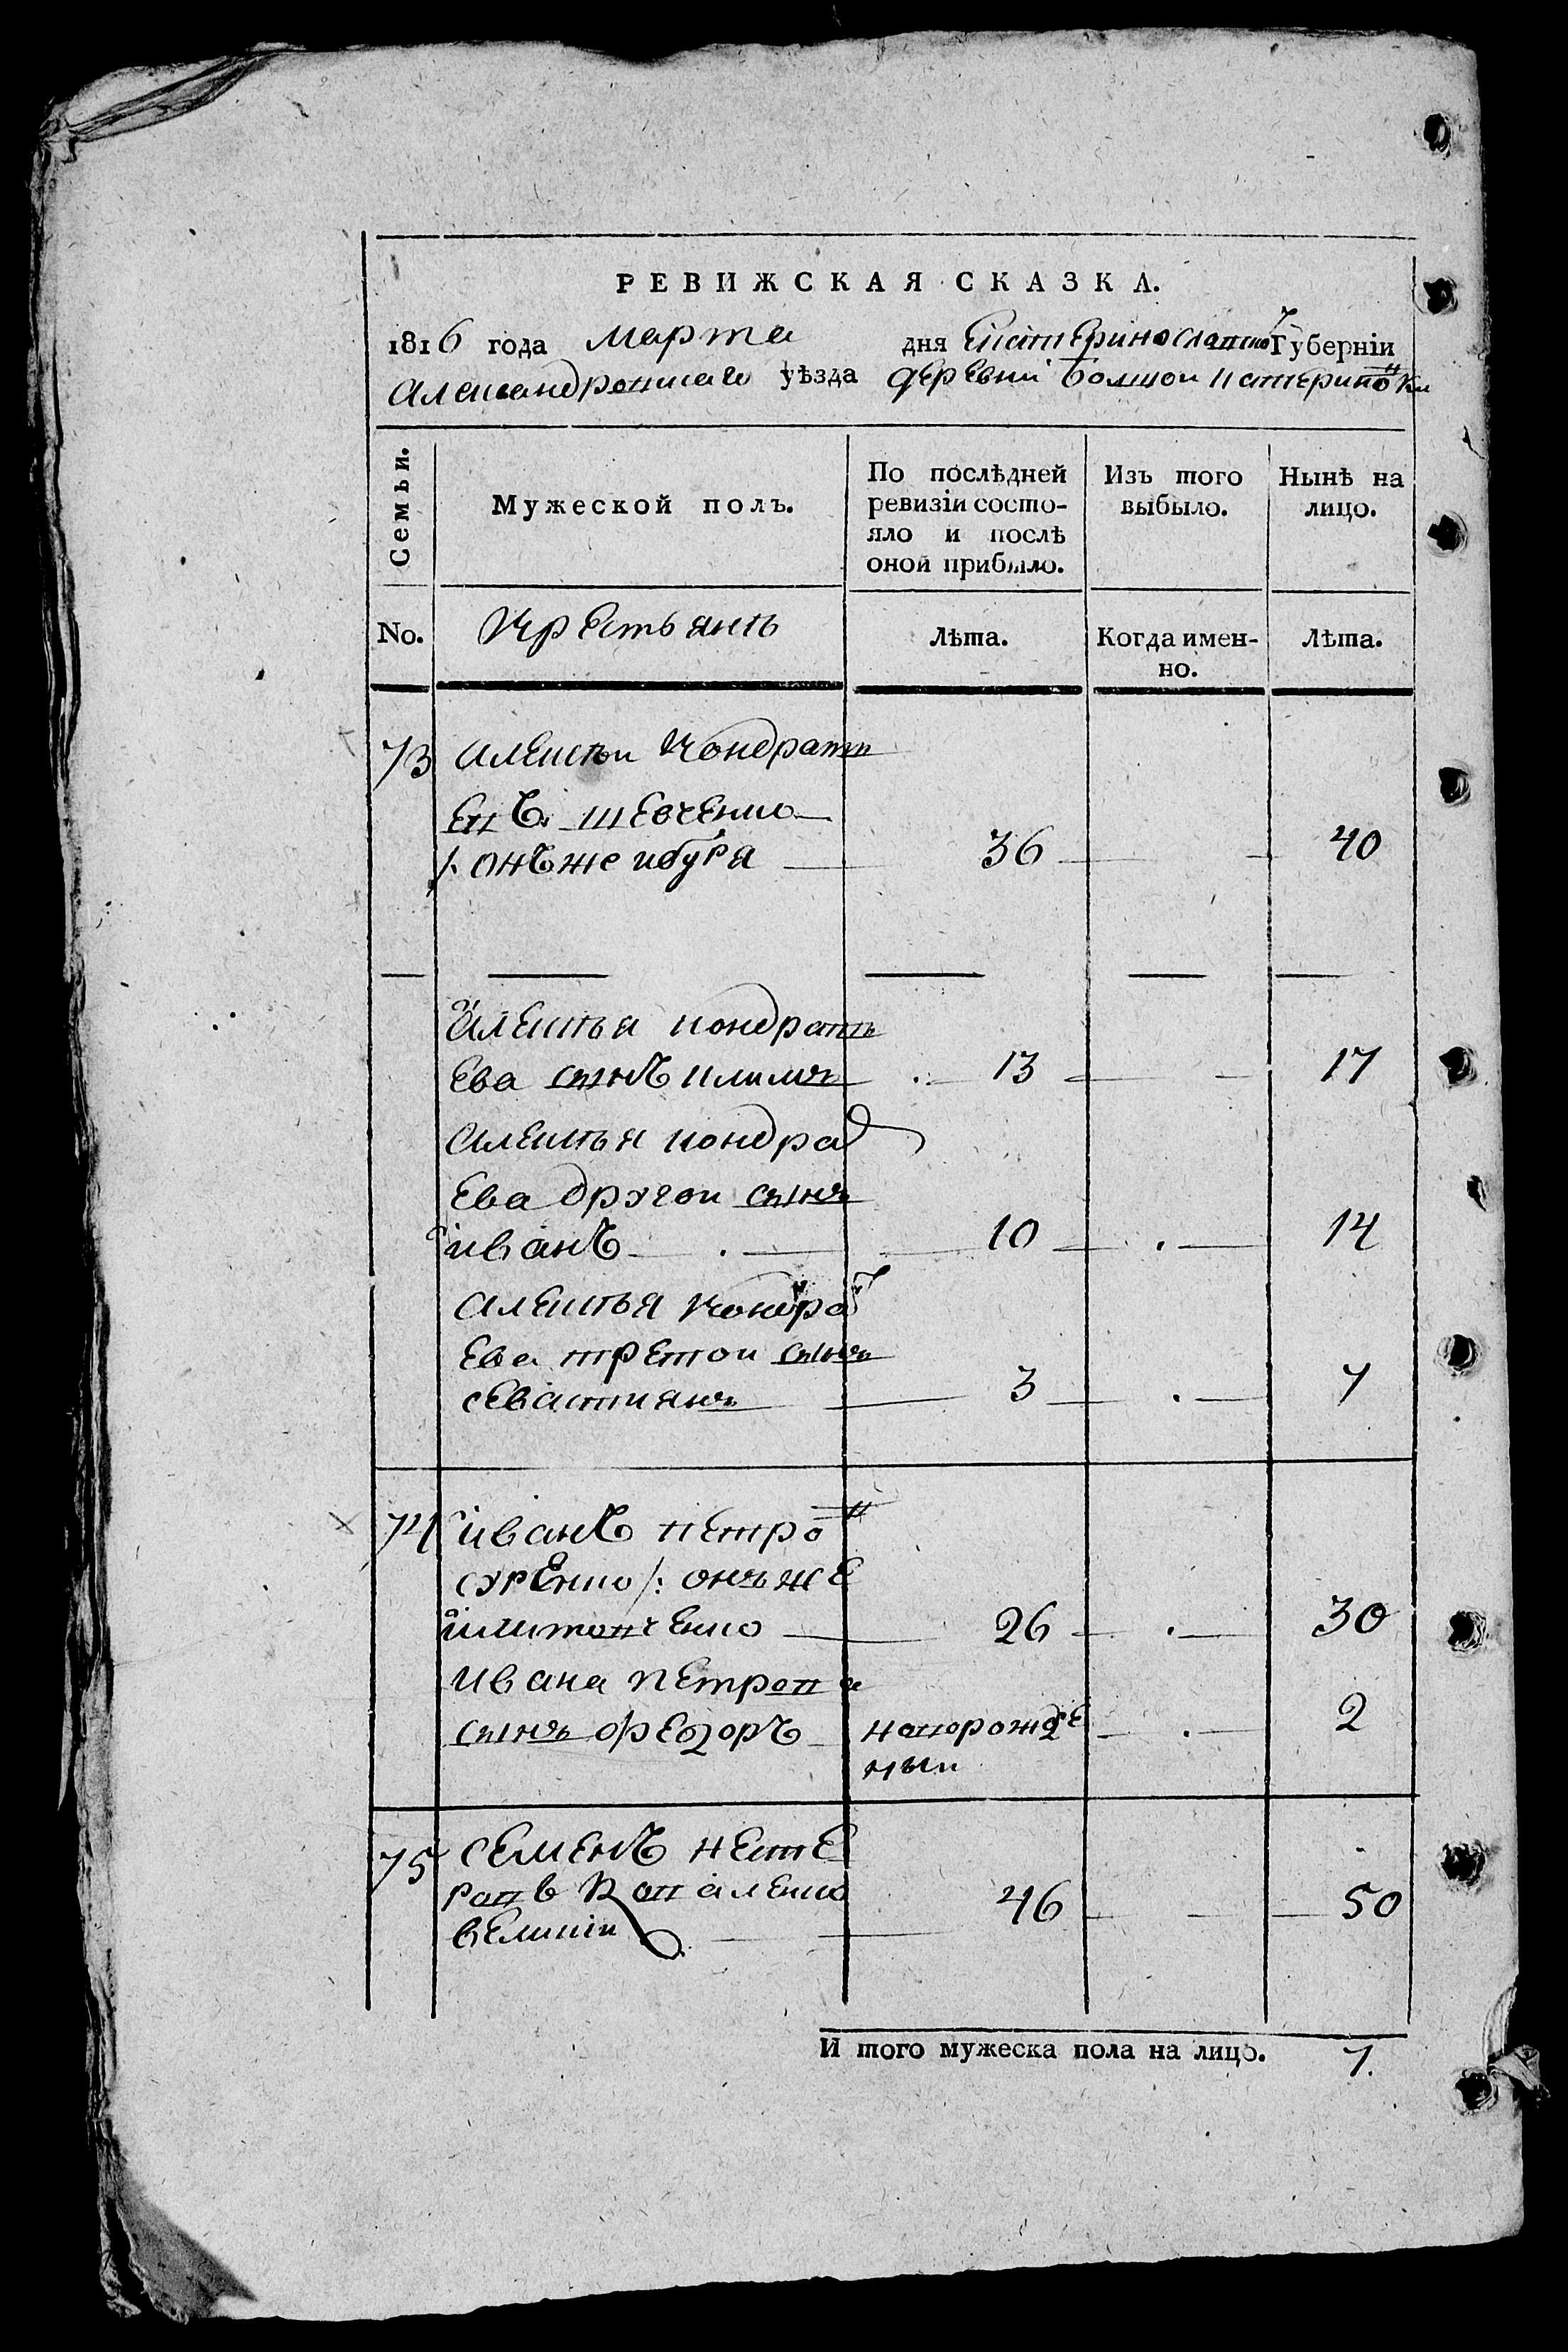 РЕВИЖСКАЯ СКАЗКА.
1816 года марта дня Екатеринославской Губерніи
Александровскаго уѣзда деревни Болшои Катериновки
Семьи.
Мужеской полъ.
По послѣдней ревизіи состо-
яло и послѣ
оной прибыло.
Изъ того
выбыло.
Нынѣ на
лицо.
No.
Крестьянъ
Лѣта.
Когда имен-
но.
Лѣта.
73 Алексѣи Кондрати
евъ шевченко
/: онъже кобуря 36 40
Алексѣя кондрать
ева сынъ климъ 13 17
Алексѣя кондрат
ева другои сынъ
иванъ 10 14
Алексѣя Кондрат
ева третои сынъ
севастиянъ 3 7
74 иванъ петров
суренко /: онъже
26 30
Ивана петрова
сынъ федоръ новорожде 2
ныи
75 семенъ несте
ровъ Коваленко
46 50
И того мужеска пола на лицо. 7.